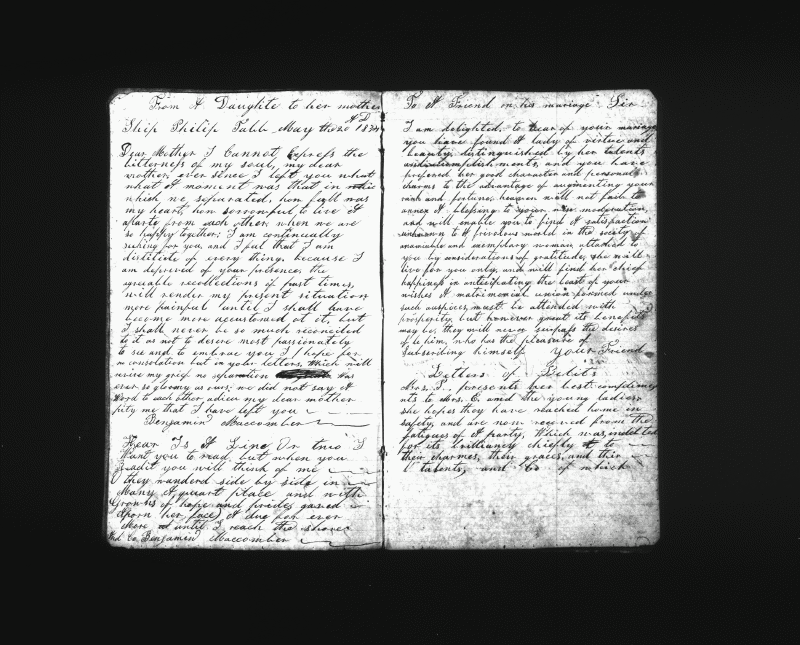 From A Daughte to her mother
AD
Ship Philip Tabb May the 20 1834
Dear Mother I Cannot Express the
bitterness of my soul, my dear
mother, ever sence I left you what
what A moment was that in
which we separated, how full was
my heart, how sorrowful to live A
aparte from each other, when we are
so happy together; I am continually
seeking for you, and I ful that I am
distitide of every thing, because I
am deprived of your presence, the
agreable recollections of past times,
will render my present situation
more painful until I shall have
become more accustomed at it, but
I shall never be so much reconciled
to it as not to desere most passionately
to see and to embrace you I hope for
no consolation but in your letters, Which will
revive my grief no separation Was
ever so gloomy as ours; we did not say A
Word to each other, adieu my dear mother
pity me that I have left you
Benjamin Maccomber
Hear Is A Line Or two I
Want you to read, but when you
readit you will think of me
they wanderd side by side in
Many A quart place and with
of hope and prides gased
uporn her face A due for ever
more until I reach the shore
Benjamin Maccomber
To A Friend on his mariage Sir
I am delighted, to hear of your mariage
you have found A lady of virtue and
beauty, distinguished by her talents
and accomplishments, and you have
preferred her good character and personal
charms to the advantage of augmenting your
rank and fortune, heaven will not fail to
annex A blessing to your moderation,
and will enable you to find A satisfaction
unknown to A frivolous world in the society of
amiable and exemplary woman, attached to
you by considerations of gratitude, she will
live for you only, and will find her chief
happiness in anticipating the least of your
wishes A matrimonial union formed under
such auspices, must be attended with
prosperity, but however great its benefits
may be, they will never surpass the desires
of him, who has the pleasure of
Subscribing himself your Friend
Letters of
Mrs. P., presents her best complime
nts to Mrs. E. amd the young ladies
she hopes they have reached home in
safety, and are now recoverd from the
fatigues of A party, Which was indebted
for its brilliancy chiefly to
their charmes, their graces, and thir
talents, and Co of which